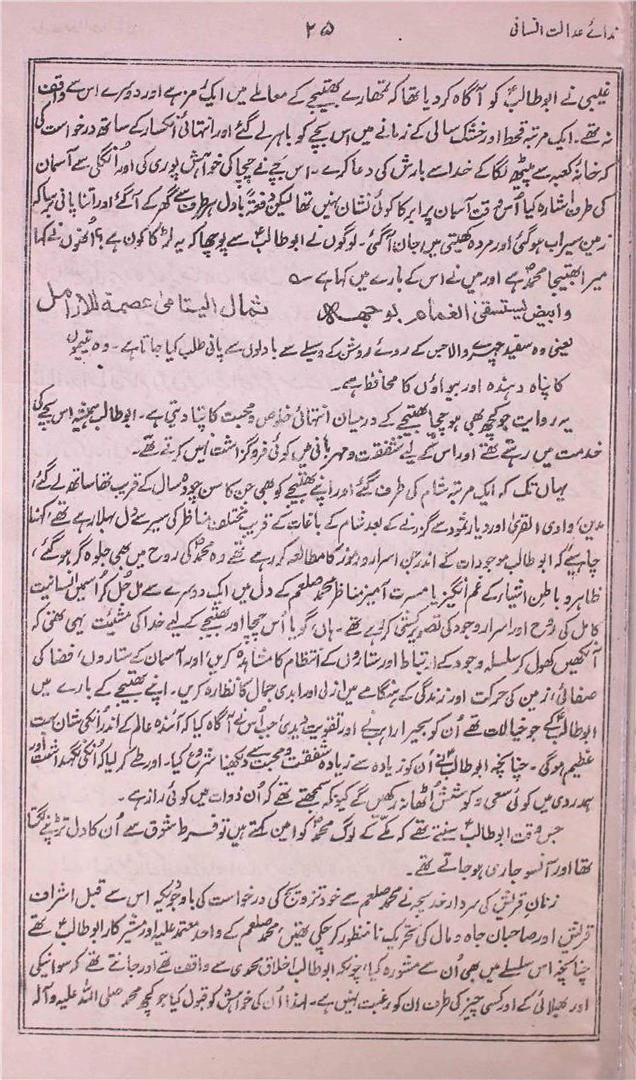 ندائے عدالت انسانی
۲۵
غیبی نے ابوطالبؑ کو آگاہ کر دیا تھا کہ تمھارے بھتیجے کے معاملے میں ایک رمز ہے اور دوسرے اس سے واقف
نہ تھے۔ ایک مرتبہ قحط اور خشک سالی کے زمانے میں اس بچے کو باہر لے گئے اور انتہائی انکسار کے ساتھ درخواست کی
کہ خانۂ کعبہ سے پیٹھ لگا کے خدا سے بارش کی دعا کرے۔ اس بچے نے چچا کی خواہش پوری کی اور اُنگلی سے آسمان
کی طرف اشارہ کیا اُس وقت آسمان پر ابر کا کوئی نشان نہیں تھا لیکن دفعۃً بادل ہر طرف سے گھر کے آگئے اور اتنا پانی برسا کہ
زمین سیراب ہو گئی اور مردہ کھیتی میں جان آ گئی۔ لوگوں نے ابوطالبؑ سے پوچھا کہ یہ لڑکا کون ہے؟ اُنھوں نے کہا
میرا بھتیجا محمدؐ ہے اور میں نے اس کے بارے میں کہا ہے ؎
وابیض لیستسقی الغمام بوجھہ ثمال الیتامی عصمة للارامل
یعنی وہ سفید چہرے والا جس کے روئے روشن کے وسیلے سے بادلوں سے پانی طلب کیا جاتا ہے۔ وہ یتیموں
کا پناہ دہندہ اور بیواؤں کا محافظ ہے۔
یہ روایت جو کچھ بھی ہو چچا بھتیجے کے درمیان انتہائی خلوص و محبت کا پتا دیتی ہے۔ ابوطالب ہمیشہ اس بچے کی
خدمت میں رہتے تھے اور اس کے لیے شفقت و مہربانی میں کوئی فروگزاشت نہیں کرتے تھے۔
یہاں تک کہ ایک مرتبہ شام کی طرف گئے اور اپنے بھتیجے کو بھی جن کا سن چودہ سال کے قریب تھا ساتھ لے گئے،
مدین، وادی القریٰ اور دیار ثمود سے گزرنے کے بعد شام کے باغات کے قریب مختلف مناظر کی سیر سے دل بہلا رہے تھے، کہنا
چاہیے کہ ابوطالب موجودات کے اندر جن اسرار و رموز کا مطالعہ کر رہے تھے وہ محمدؐ کی روح میں بھی جلوہ گر ہو گئے،
ظاہر و باطن اشیاء کے غم انگیز یا مسرت آمیز مناظر محمد صلعم کے دل میں ایک دوسرے سے مل جل کر اُسمیں انسانیت
کامل کی رُوح اور اسرار وجود کی تصویر کشی کر رہے تھے۔ ہاں، گویا اُس چچا اور بھتیجے کے لیے خدا کی مشیئت یہی تھی کہ
آنکھیں کھول کر سلسلہ وجود کے ارتباط اور ستاروں کے انتظام کا مشاہدہ کریں، اور آسمان کے ستاروں، فضا کی
صفائی، زمین کی حرکت اور زندگی کے ہنگامے میں ازلی اور ابدی جمال کا نظارہ کریں۔ اپنے بھتیجے کے بارے میں
ابوطالبؑ کے جو خیالات تھے اُن کو بحیرا راہب نے اور تقویت دیدی جب اُس نے آگاہ کیا کہ آئندہ عالم کے اندر اُنکی شان بہت
عظیم ہوگی۔ چنانچہ ابوطالبؑ نے اُن کو زیادہ سے زیادہ شفقت و محبت سے دیکھنا شروع کیا۔ اور طے کر لیا کہ اُنکی نگہداشت اور
ہمدردی میں کوئی سعی و کوشش اُٹھا نہ رکھیں گے کیونکہ سمجھتے تھے کہ اُن کی ذات میں کوئی راز ہے۔
جس وقت ابوطالبؑ سنتے تھے کہ مکے کے لوگ محمدؐ کو امین کہتے ہیں تو فرط شوق سے اُن کا دل تڑپنے لگتا
تھا اور آنسو جاری ہو جاتے تھے۔
زنان قریش کی سردار خدیجہ نے محمد صلعم سے خود تزویج کی درخواست کی باوجودیکہ اس سے قبل اشراف
قریش اور صاحبان جاہ و مال کی تحریک نامنظور کر چکی تھیں، محمد صلعم کے واحد معتمد علیہ اور مشیر کار ابوطالبؑ تھے
چنانچہ اس سلسلے میں بھی اُن سے مشورہ کیا، چونکہ ابوطالب اخلاق محمدی سے واقف تھے اور جانتے تھے کہ سوا نیکی
اور بھلائی کے اور کسی چیز کی طرف ان کو رغبت نہیں ہے۔ لہٰذا اُن کی خواہش کو قبول کیا جو کچھ محمد صلی اللہ علیہ وآلہ